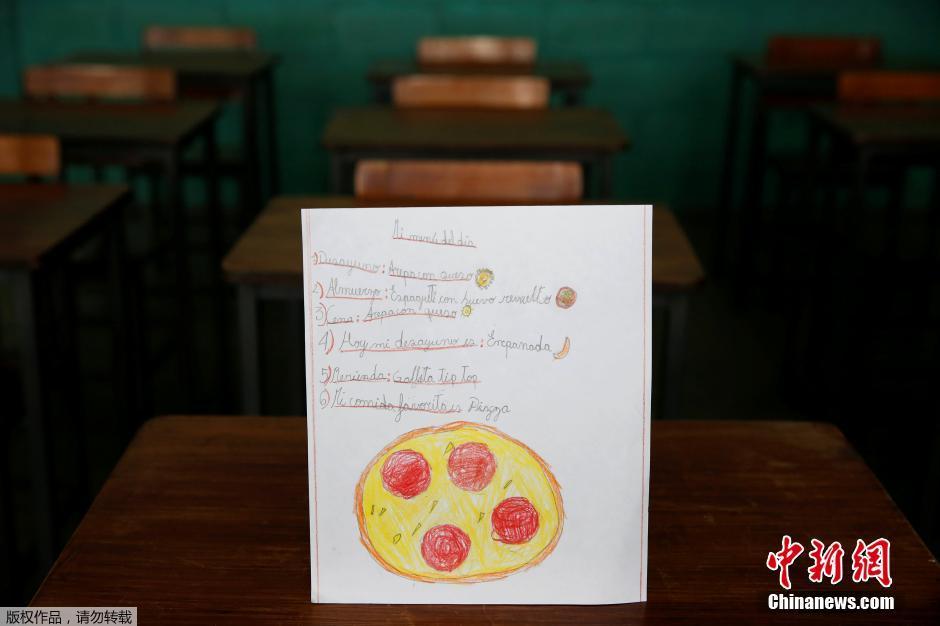 Mi menú del día
1) Desayuno: Arepa con queso
2) Almuerzo: Espagueti con huevo revuelto
3) Cena: Arepa con queso
4) Hoy mi desayuno es: Empanada
5) Merienda: Galleta tip top
6) Mi comida favorita es Pizza
中新网
Chinanews.com
版权作品,请勿转载